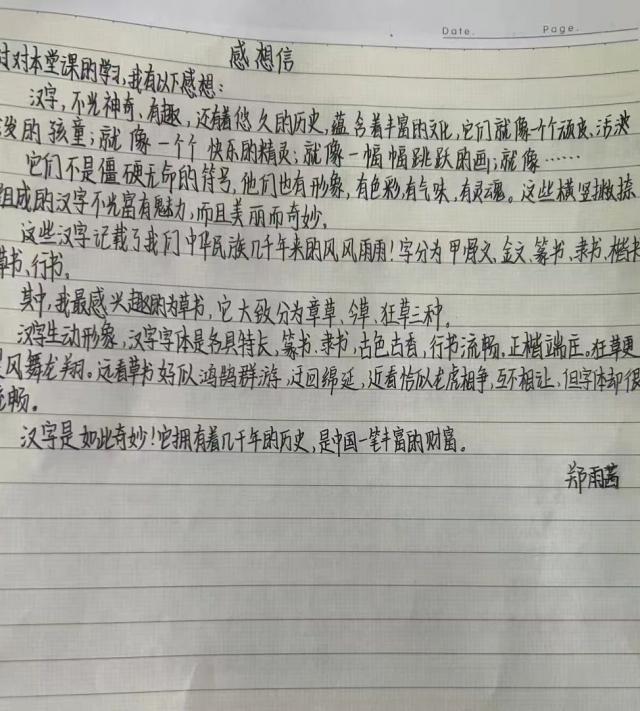 Date. Page.
感想信
过对本堂课的学习,我有以下感想:
汉字,不光神奇、有趣,还有着悠久的历史,蕴含着丰富的文化,它们就像一个个顽皮、活泼
泼的孩童;就像一个个快乐的精灵;就像一幅幅跳跃的画;就像……
它们不是僵硬无命的符号,他们也有形象,有色彩,有气味,有灵魂。这些横竖撇捺
组成的汉字不光富有魅力,而且美丽而奇妙。
这些汉字记载了我们中华民族几千年来的风风雨雨!字分为甲骨文、金文、篆书、隶书、楷书
草书、行书。
其中,我最感兴趣的为草书,它大致分为章草、今草、狂草三种。
汉字生动形象,汉字字体是各具特长,篆书、隶书,古色古香,行书流畅。正楷端庄。狂草更
风舞龙翔。远看草书好似鸿鹄群游,迂回绵延,近看恰似龙虎相争,互不相让,但字体却很
流畅。
汉字是如此奇妙!它拥有着几千年的历史,是中国一笔丰富的财富。
郑雨茜